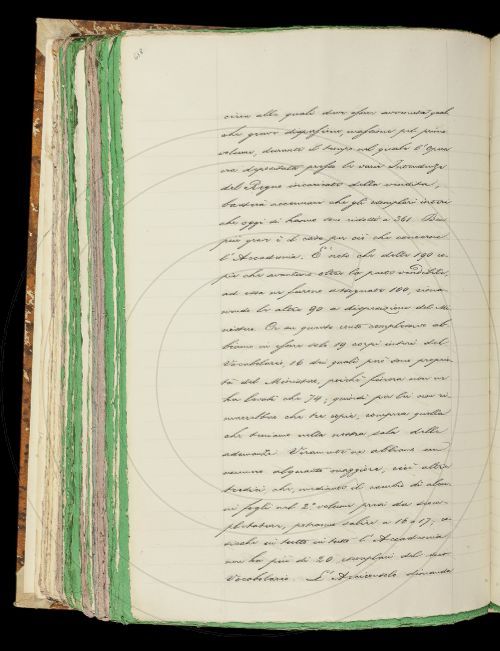 618
circa alle quali deve esser avvenuta qual
che grave dispersione, massime pel primo
volume, durante il tempo nel quale l'Opera
era depositata presso le varie Intendenze
del Regno incaricate della vendita;
basterà accennare che gli esemplari interi
che oggi si hanno son ridotti a 361. Ben
più grave è il caso per ciò che concerne
l'Accademia. È noto che delle 190 co-
pie che avanzano oltre la parte vendibile,
ad essa ne furono assegnate 100, rima-
nendo le altre 90 a disposizione del Mi-
nistero. Or su questo cento complessivo ab-
biamo in essere solo 19 corpi interi del
Vocabolario, 16 dei quali però sono proprie-
tà del Ministero, poiché finora non ne
ha levati che 74; quindi per lei non ri-
marrebbero che tre copie, compresa quella
che teniamo nella nostra sala delle
adunanze. Veramente ne abbiamo un
numero alquanto maggiore, cioè altre
tredici che, mediante il cambio di alcu-
ni fogli nel 2° volume
potranno salire a 16 o 17; co-
sicché in tutto in tutto l'Accademia
non ha più di 20 esemplari del suo
Vocabolario. L'